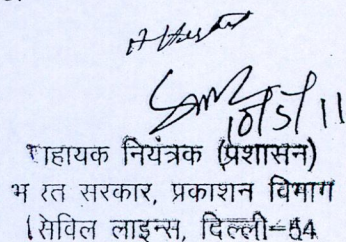 10/5/11
सहायक नियंत्रक (प्रशासन)
भारत सरकार, प्रकाशन विभाग
सिविल लाइन्स, दिल्ली-54